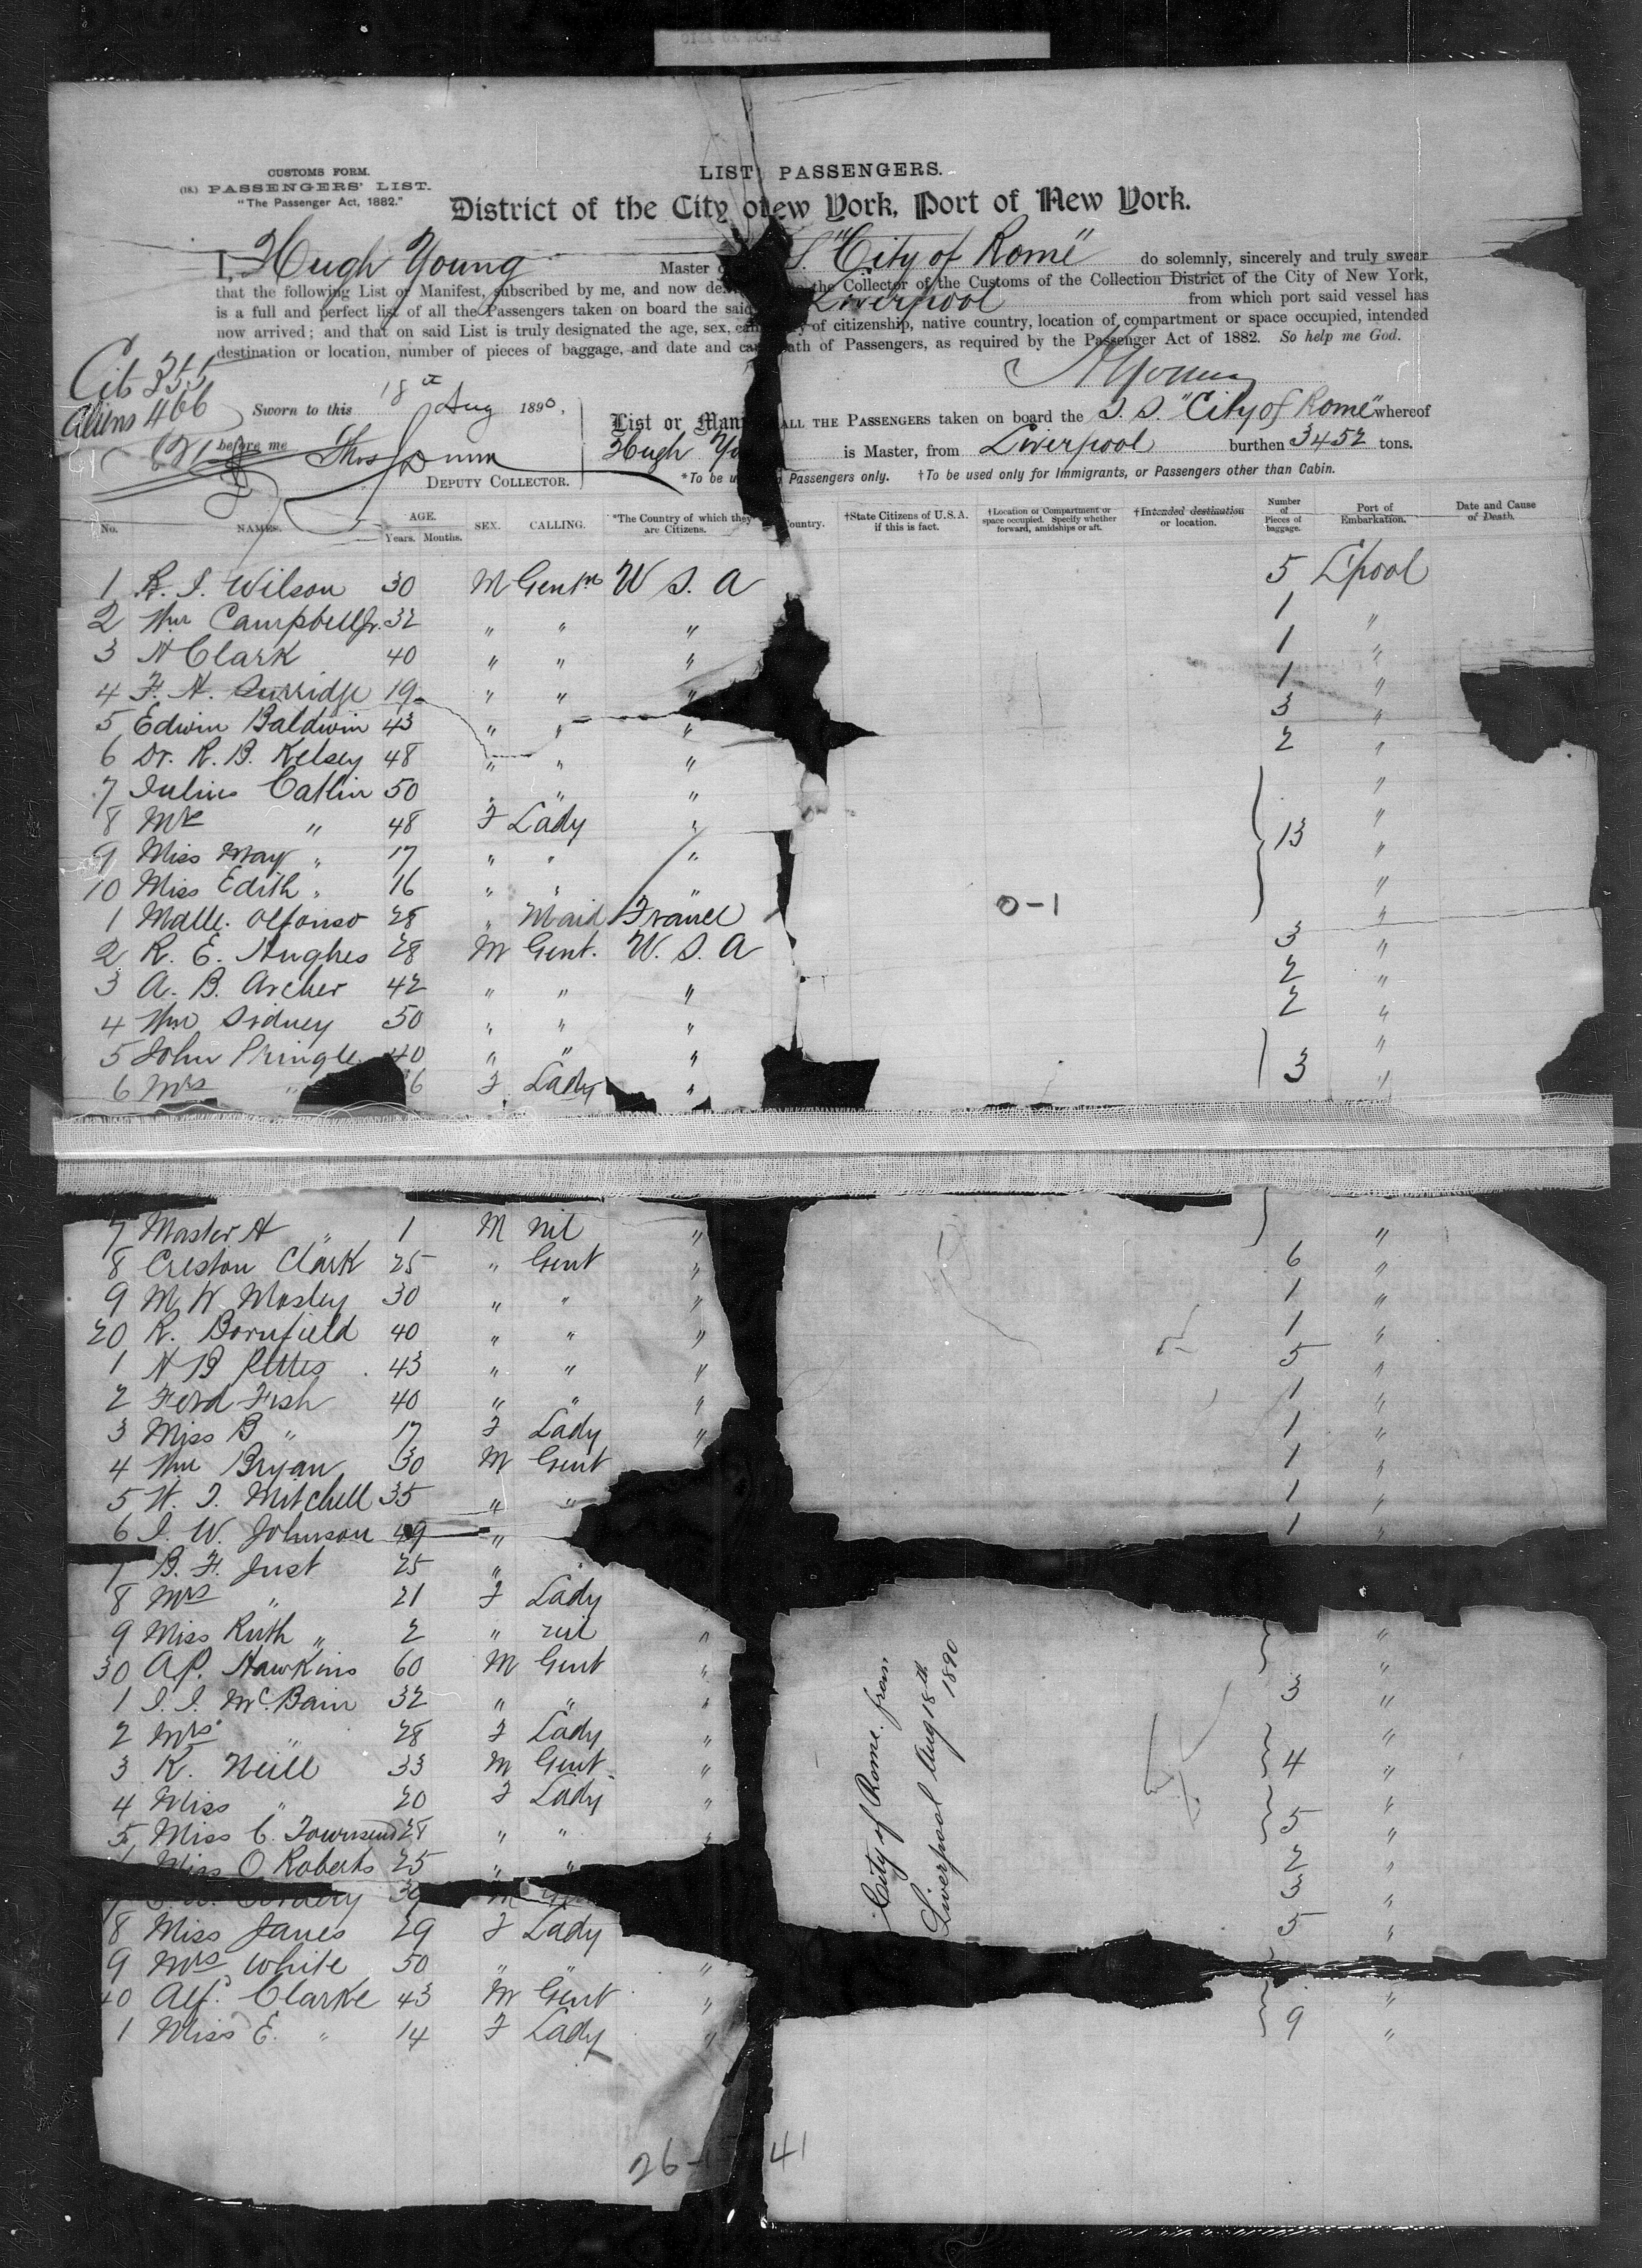 CUSTOMS FORM.
(18.) PASSENGERS' LIST.
"The Passenger Act, 1882."
LIST PASSENGERS.
District of the City o ew York, Port of New York.
I, Hugh Young Master o S. "City of Rome" do solemnly, sincerely and truly swear
that the following List or Manifest, subscribed by me, and now de the Collector of the Customs of the Collection District of the City of New York,
is a full and perfect list of all the Passengers taken on board the said Liverpool from which port said vessel has
now arrived; and that on said List is truly designated the age, sex, ca y of citizenship, native country, location of compartment or space occupied, intended
destination or location, number of pieces of baggage, and date and ca ath of Passengers, as required by the Passenger Act of 1882. So help me God.
Cit 355
Aliens 466
HYoung
Sworn to this 18th Aug 1890,
before me Thos Dunn
DEPUTY COLLECTOR.
List or Mani ALL THE PASSENGERS taken on board the S. S. "City of Rome" whereof
Hugh Yo is Master, from Liverpool burthen 3452 tons.
*To be u Passengers only. †To be used only for Immigrants, or Passengers other than Cabin.
No. NAMES. AGE. Years. Months. SEX. CALLING. *The Country of which they are Citizens. Country. †State Citizens of U.S.A. if this is fact. †Location of Compartment or space occupied. Specify whether forward, amidships or aft. †Intended destination or location. Number of Pieces of baggage. Port of Embarkation. Date and Cause of Death.
1 R. I. Wilson 30 M Gentm U S. A 5 L'pool
2 Wm Campbell Jr. 32 " " " 1 "
3 H Clark 40 " " " 1 "
4 F. H. Surridge 19 " " " 1 "
5 Edwin Baldwin 43 " " " 3 "
6 Dr. R. B. Kelsey 48 " " " 2 "
7 Julius Catlin 50 " " " "
8 Mrs " 48 F Lady " 13 "
9 Miss May " 17 " " " "
10 Miss Edith " 16 " " " "
1 Malle. Alfonso 28 " Maid France 0-1 "
2 R. E. Hughes 28 M Gent. U. S. A 3 "
3 A. B. Archer 42 " " " 2 "
4 Wm Sidney 50 " " " 2 "
5 John Pringle 40 " " " "
6 Mrs " 6 F Lady " 3 "
7 Master H " 1 M nil " "
8 Creston Clark 25 " Gent " 6 "
9 M W Mosley 30 " " " 1 "
20 R. Bornfield 40 " " " 1 "
1 H B 43 " " " 5 "
2 Ferd Fish 40 " " " 1 "
3 Miss B " 17 F Lady " 1 "
4 Wm Bryan 30 M Gent 1 "
5 W. J. Mitchell 35 " " 1 "
6 J. W. Johnson 49 " 1 "
7 B. F. Just 25 "
8 Mrs " 21 F Lady
9 Miss Ruth " 2 " nil " "
30 A P. Hawkins 60 M Gent " "
1 J. J. McBain 32 " " " 3 "
2 Mrs " 28 F Lady " "
3 R. Neill 33 M Gent. " 4 "
4 Miss " 20 F Lady " "
5 Miss C. Townsend 28 " " " 5 "
Miss O Roberts 25 " " 2 "
30 M 3 "
8 Miss Janes 29 F Lady 5 "
9 Mrs White 50 " " "
40 Alf. Clarke 43 M Gent " "
1 Miss E. " 14 F Lady " 9 "
City of Rome from
Liverpool Aug 18th
1890
26-
41